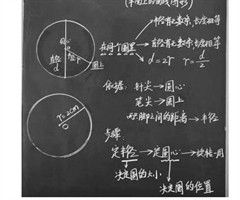 (平面上的曲线图形)
半径有无数条,长度相等
在同1个圆里
直径有无数条,长度相等
d=2r r=d/2
圆心
直径
d
半径
r
圆上
依据: 针尖→圆心
笔尖→圆上
两脚之间的距离→半径
r=2cm
O
步骤
定半径→定圆心→旋转一周
决定圆的大小
决定圆的位置